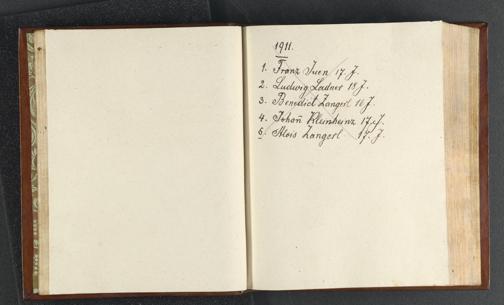 1911.
1. Franz Juen 17. J.
2. Ludwig Ladner 18 J.
3. Benedict Zangerl 16 J.
4. Johañ Kleinheinz 17. J.
5. Alois Zangerl 17. J.